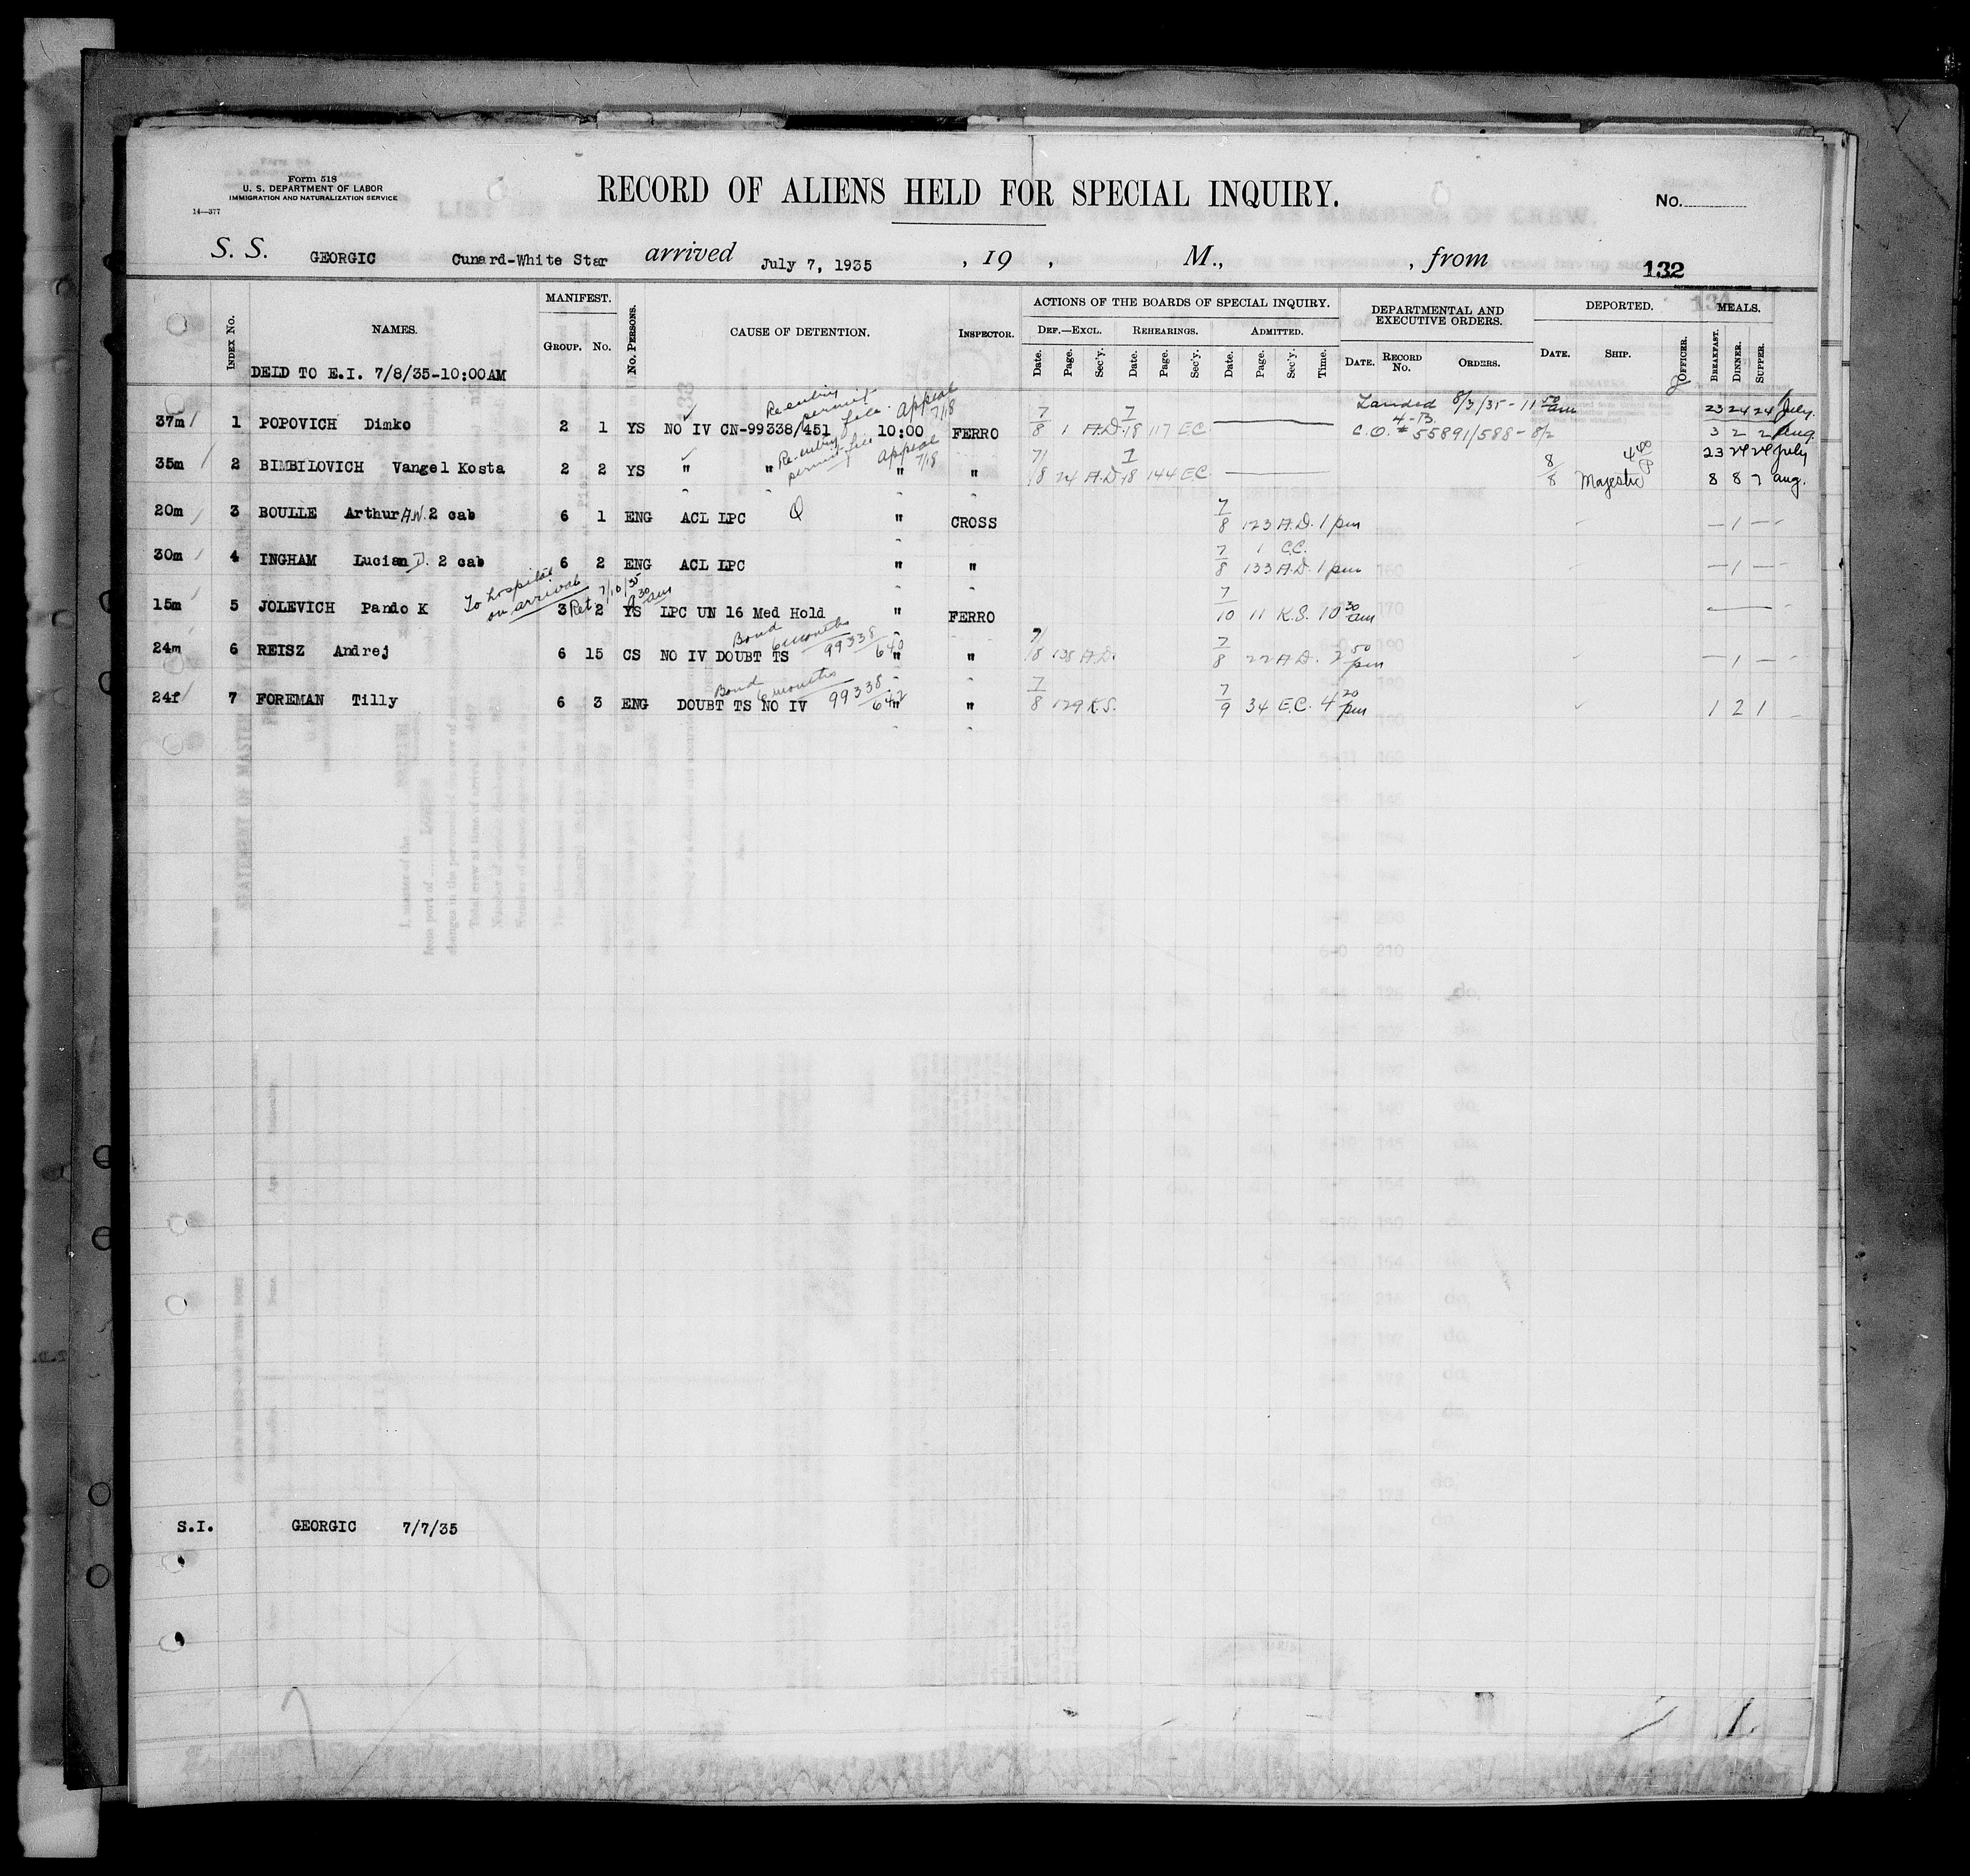 Form 518
U. S. DEPARTMENT OF LABOR
IMMIGRATION AND NATURALIZATION SERVICE
14—377
RECORD OF ALIENS HELD FOR SPECIAL INQUIRY.
No.
S. S. GEORGIC Cunard-White Star arrived July 7, 1935 , 19 , M., , from
132
INDEX No. NAMES. MANIFEST. GROUP. No. No. PERSONS. CAUSE OF DETENTION. INSPECTOR. ACTIONS OF THE BOARDS OF SPECIAL INQUIRY. DEF.—EXCL. Date. Page. Sec'y. REHEARINGS. Date. Page. Sec'y. ADMITTED. Date. Page. Sec'y. Time. DEPARTMENTAL AND EXECUTIVE ORDERS. DATE. RECORD No. ORDERS. DEPORTED. DATE. SHIP. OFFICER. MEALS. BREAKFAST. DINNER. SUPPER.
DEID TO E.I. 7/8/35-10:00AM
Re-entry permit file. Appeal 7/18
Landed 8/3/35 - 11 50 am
23 24 24 July.
37m 1 POPOVICH Dimko 2 1 YS NO IV CN-99338/451 10:00 FERRO 7/8 1 A.D. 7/18 117 E.C. C.O. # 55891/588 - 8/2 3 2 2 Aug.
4-B
Re-entry permit file Appeal 7/18
23 24 24 July
35m 2 BIMBILOVICH Vangel Kosta 2 2 YS " " " " 7/8 74 A.D. 7/18 144 E.C. 8/8 Majestic 4 40 P 8 8 7 Aug.
20m 3 BOULLE Arthur A.W. 2 cab 6 1 ENG ACL LPC Q " CROSS 7/8 123 A.D. 1 pm — 1 —
1 C.C.
30m 4 INGHAM Lucian D. 2 cab 6 2 ENG ACL LPC " " 7/8 133 A.D. 1 pm — 1 —
To hospital on arrival Ret 7/10/35 9 30 am
15m 5 JOLEVICH Pando K 3 2 YS LPC UN 16 Med Hold " FERRO 7/10 11 K.S. 10 30 am
Bond 6 months 99338/640
24m 6 REISZ Andrej 6 15 CS NO IV DOUBT TS " " 7/8 138 A.D. 7/8 22 A.D. 2 50 pm — 1 —
Bond 6 months 99338/642
24f 7 FOREMAN Tilly 6 3 ENG DOUBT TS NO IV " " 7/8 129 K.S. 7/9 34 E.C. 4 20 pm 1 2 1
S.I. GEORGIC 7/7/35